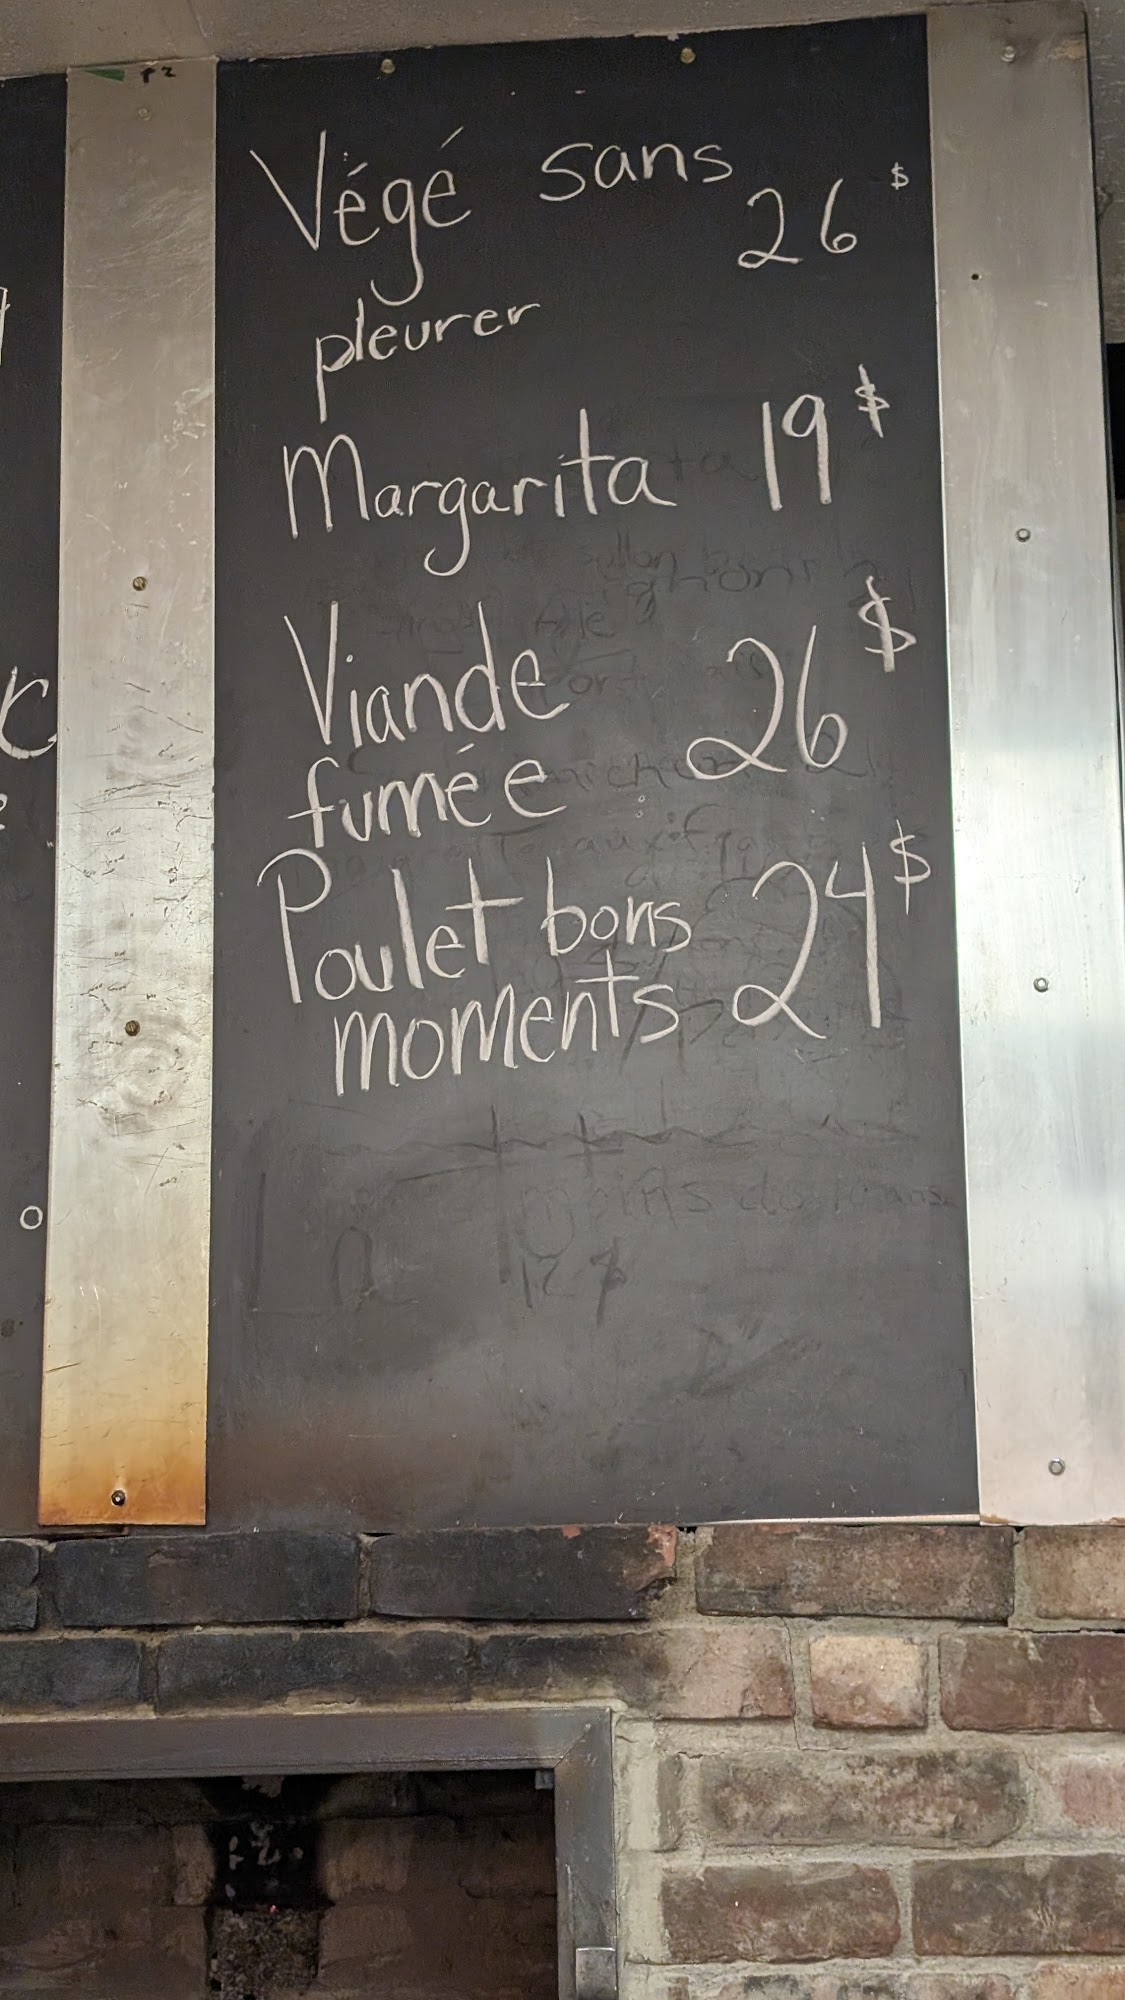 Végé sans 26 $
pleurer
Margarita 19 $
Viande
fumée 26 $
Poulet bons
moments 24 $
moins de
12 $